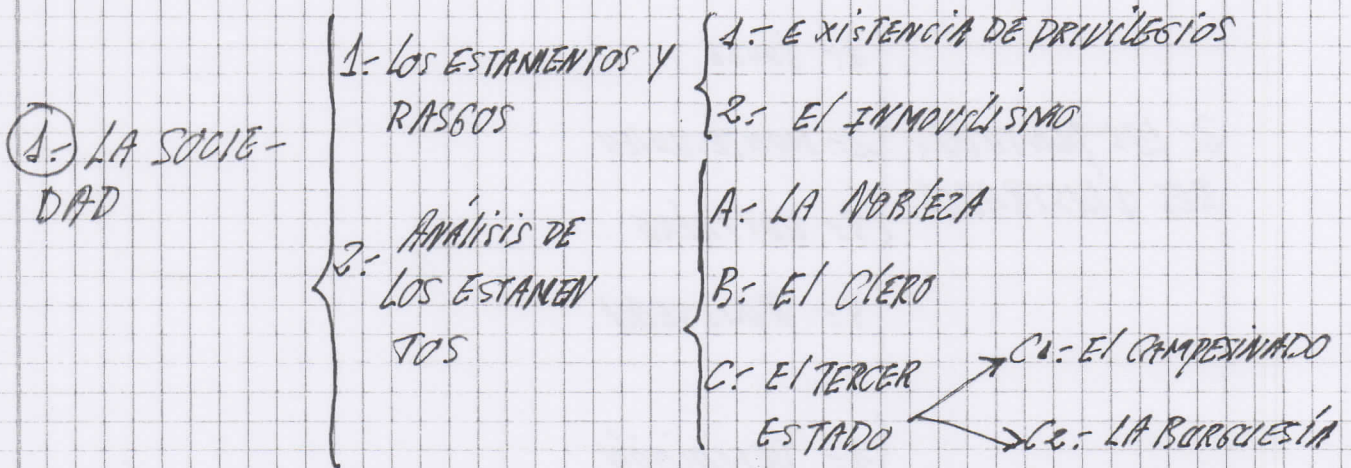 1.- LA SOCIE-
DAD
1.- LOS ESTAMENTOS Y
RASGOS
1.- EXISTENCIA DE PRIVILEGIOS
2.- El INMOVILISMO
2.- ANÁlisis DE
LOS ESTAMEN
TOS
A.- LA NOBlEZA
B.- El ClERO
C.- El TERCER
ESTADO
C1.- El CAMPESINADO
C2.- LA BURGUESÍA